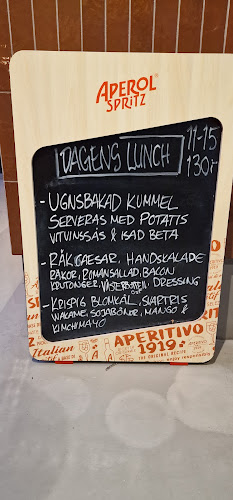 APEROL
SPRITZ
DAGENS LUNCH
11-15
130:-
- UGNSBAKAD KUMMEL
SERVERAS MED POTATIS
VITVINSSÅS & ISAD BETA
- RÄKCAESAR, HANDSKALADE
RÄKOR, ROMANSALLAD, BACON
KRUTONGER, VÄSERBOTTEN, DRESSING
- KRISPIG BLOMKÅL, SVARTRIS
WAKAME, SOJABÖNOR, MANGO &
KIMCHIMAYO
APERITIVO
Italian
1919
THE ORIGINAL RECIPE
enjoy responsibly